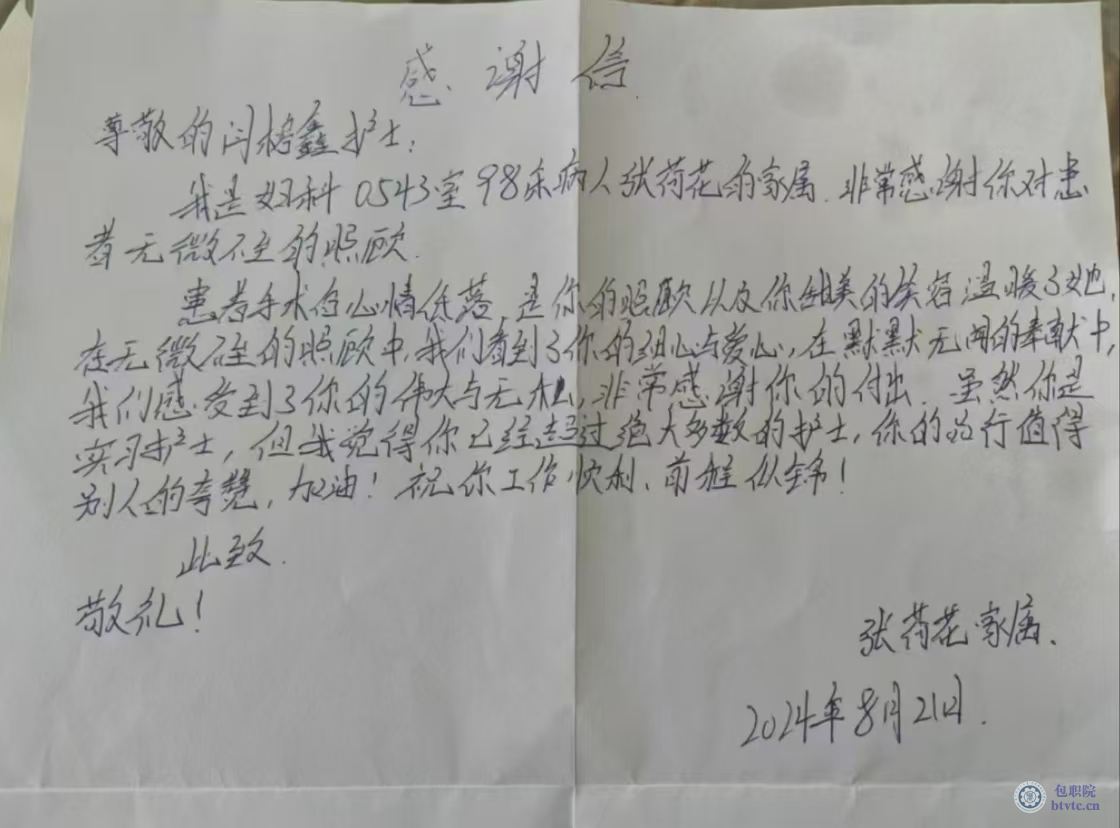 感谢信
尊敬的闫格鑫护士：
我是妇科0543室98床病人张荷花的家属.非常感谢你对患
者无微不至的照顾.
患者手术后心情低落，是你的照顾以及你甜美的笑容温暖了她，
在无微不至的照顾中，我们看到了你的细心与爱心，在默默无闻的奉献中，
我们感受到了你的伟大与无私，非常感谢你的付出.虽然你是
实习护士，但我觉得你已经超过绝大多数的护士，你的品行值得
别人的夸赞，加油！祝你工作顺利、前程似锦！
此致.
敬礼！
张荷花家属.
2024年8月21日.
包职院
btvtc.cn